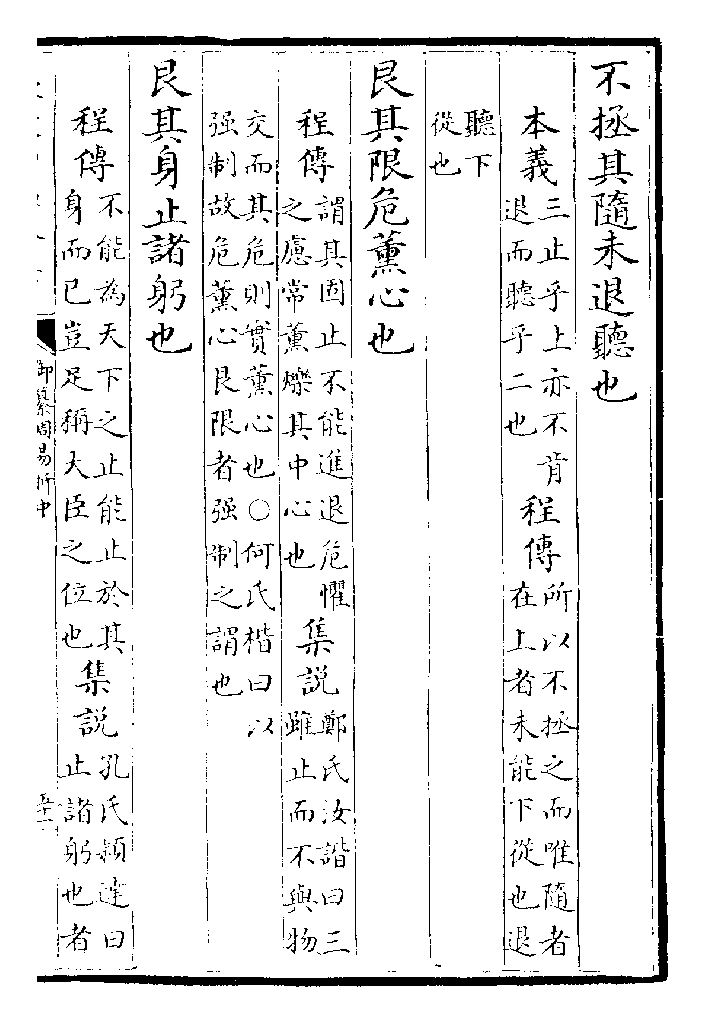 不拯其隨未退聽也
本義三止乎上亦不肯
退而聽乎二也
程傳所以不拯之而唯隨者
在上者未能下從也退
聽下
從也
艮其限危薰心也
程傳謂其固止不能進退危懼
之慮常薰爍其中心也
集說鄭氏汝諧曰三
雖止而不與物
交而其危則實薰心也○何氏楷曰以
强制故危薰心艮限者强制之謂也
艮其身止諸躬也
程傳不能為天下之止能止於其
身而已豈足稱大臣之位也
集說孔氏穎達曰
止諸躬也者
御纂周易折中